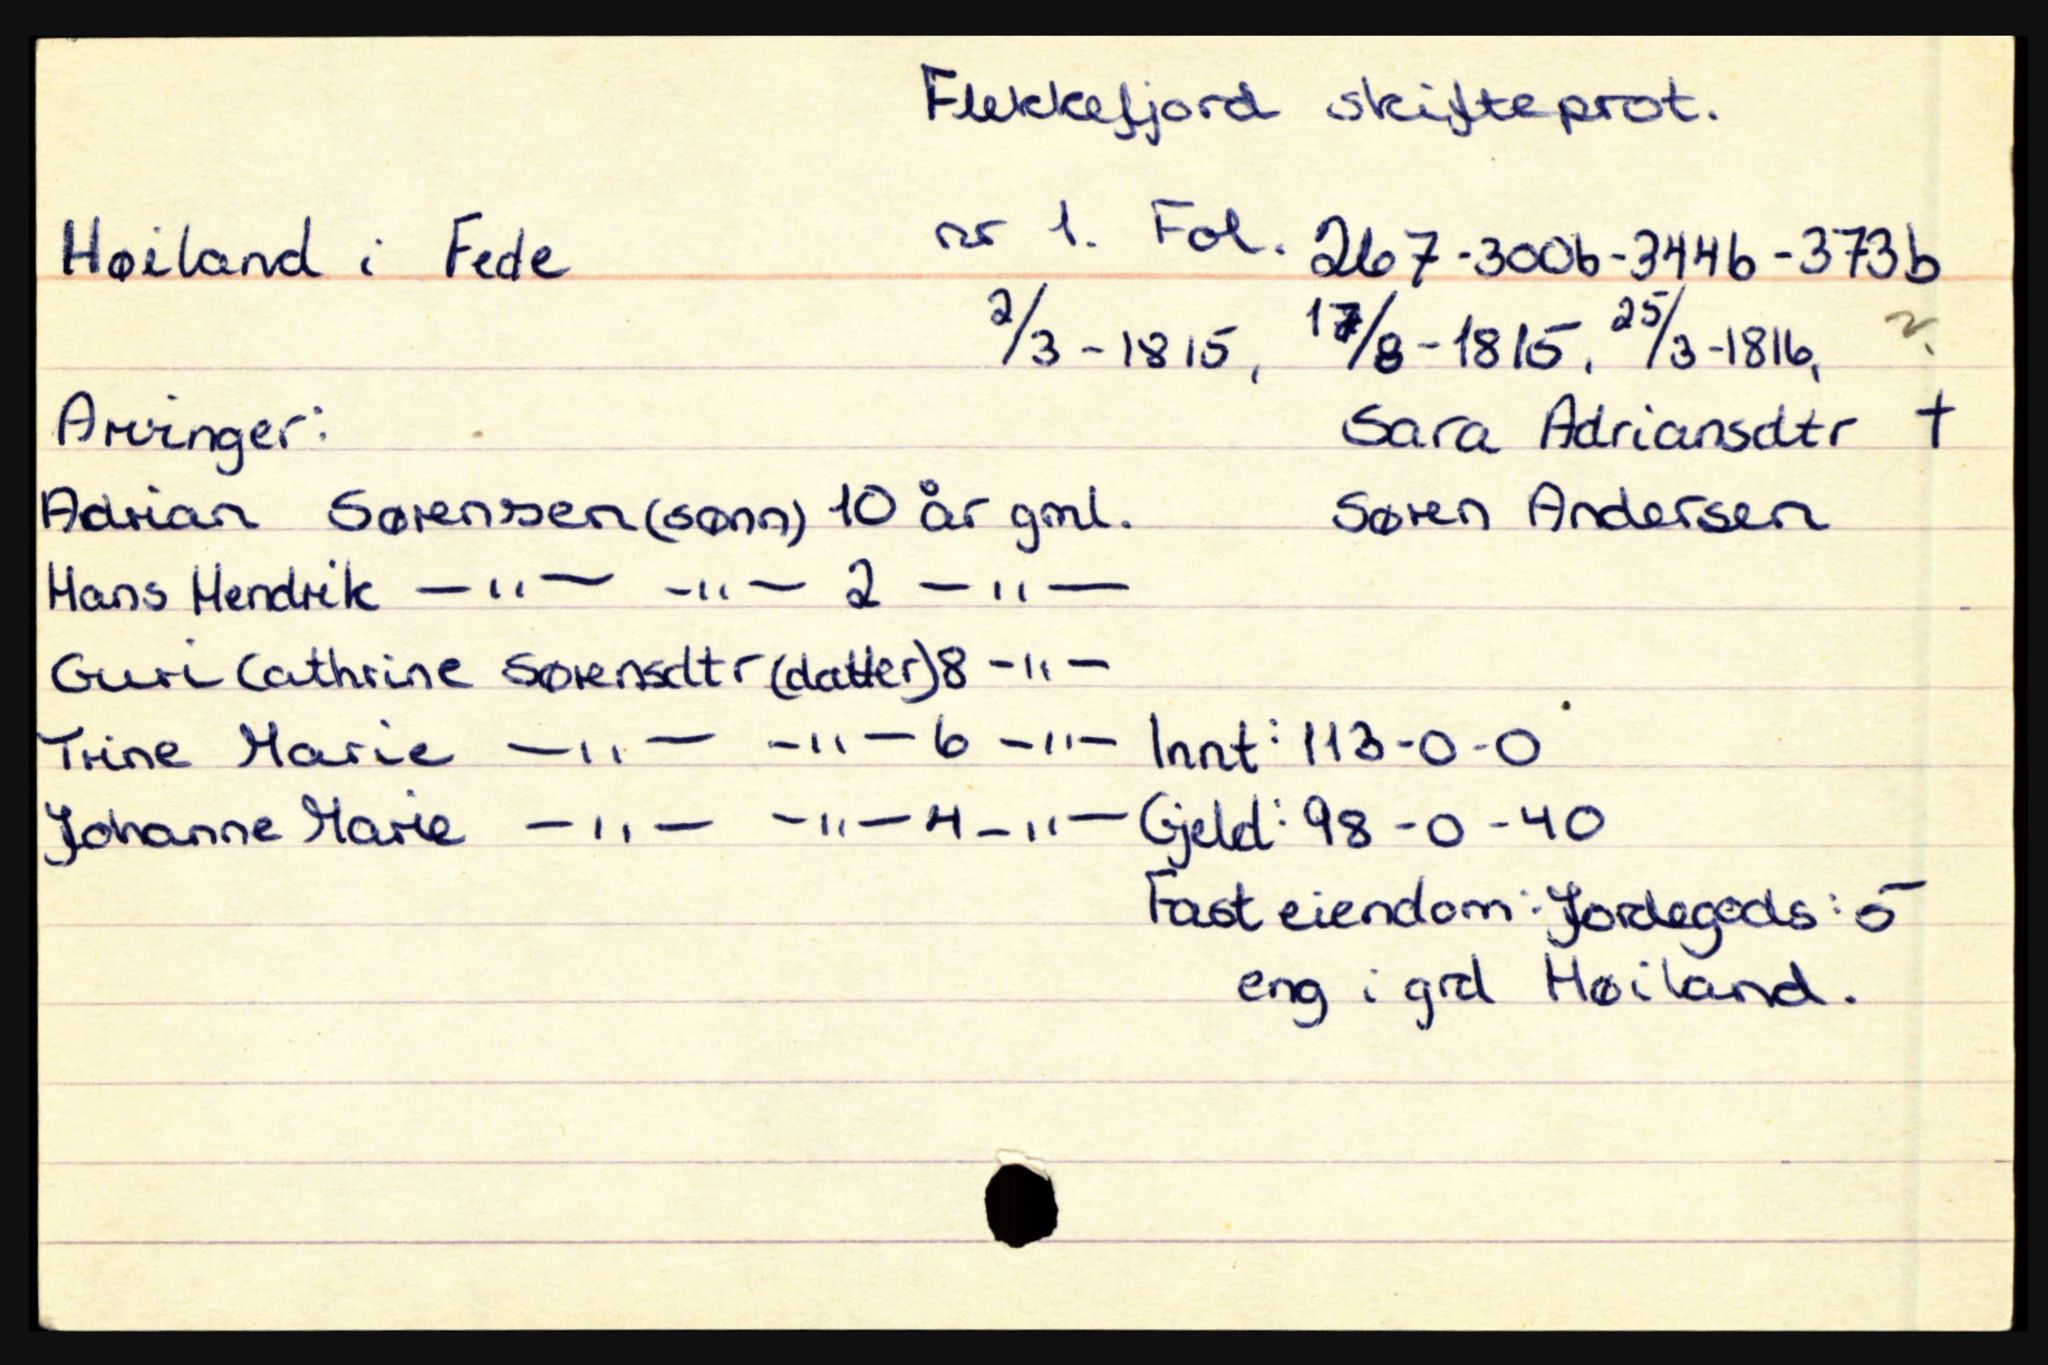 Flekkefjord skifteprot.
Høiland i Fede nr 1. Fol. 267-300b-344b-373b
2/3-1815, 17/8-1815, 25/3-1816,
Arvinger: Sara Adriansdtr †
Adrian Sørensen (sønn) 10 år gml. Søren Andersen
Hans Hendrik —"— -"— 2 —"—
Guri Cathrine Sørensdtr (datter) 8 -"-
Trine Marie —"— -"— 6 -"- Innt: 113-0-0
Johanne Marie —"— -"— 4 -"— Gjeld: 98-0-40
Fast eiendom: Jordegods: 5
eng i grd Høiland.